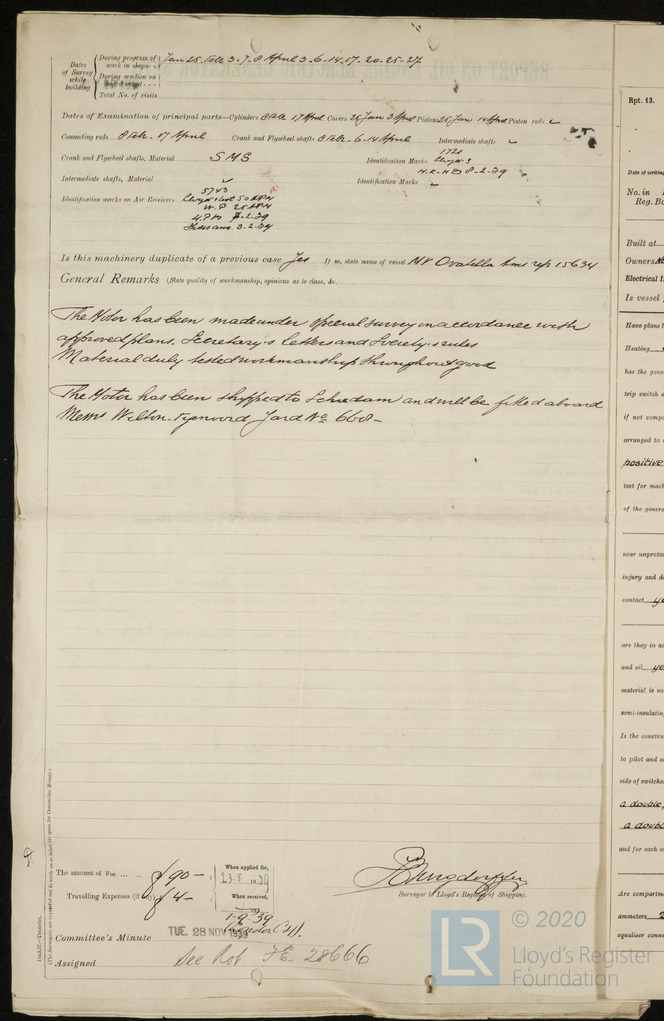 During progress of work in shops - - Jan 25. Feb 3. 7. 8 April 3. 6. 14. 17. 20. 25. 27
Dates of Survey while building
During erection on board vessel - - -
Total No. of visits
Dates of Examination of principal parts—Cylinders 8 Feb. 17 April Covers 25 Jan 3 April Pistons 25 Jan 14 April Piston rods
Connecting rods 8 Feb. 17 April Crank and Flywheel shafts 8 Feb. 6. 14 April Intermediate shafts
Crank and Flywheel shafts, Material S.M.S Identification Marks 1721
H.K. HB 8-2-39
Intermediate shafts, Material Identification Marks
Identification marks on Air Receivers 5743
W.P 25 ATM
3-2-39
Is this machinery duplicate of a previous case Yes If so, state name of vessel MV Ovatella Ams rep 15634
General Remarks (State quality of workmanship, opinions as to class, &c.
The Motor has been made under special survey in accordance with
approved plans, Secretary's letters and Society's rules
Material duly tested workmanship throughout good
The Motor has been shipped to Schiedam and will be fitted aboard
Messrs Wilton-Fijenoord Yard No 668-
The amount of Fee ... ... f 90-
When applied for,
23.5 1939
Travelling Expenses (if any) f 4-
When received,
1.9.39
Surveyor to Lloyd's Register of Shipping.
Committee's Minute TUE. 28 NOV 1939
Assigned See Rot F.E. 28666
(The Surveyors are requested not to write on or below the space for Committee Minute.)
© 2020
LR
Lloyd's Register
Foundation
Rpt. 13.
Date of writing
No. in
Reg. Bo
Built at
Owners
Electrical I
Is vessel
Have plans b
Heating
has the gove
trip switch a
if not compo
arranged to
positive
test for mach
of the genera
near unprotec
injury and d
contact ye
are they in ac
and oil ye
material is us
semi-insulatin
Is the constru
to pilot and e
side of switche
a double
a doub
and for each o
Are compartm
ammeters 2
equaliser conne